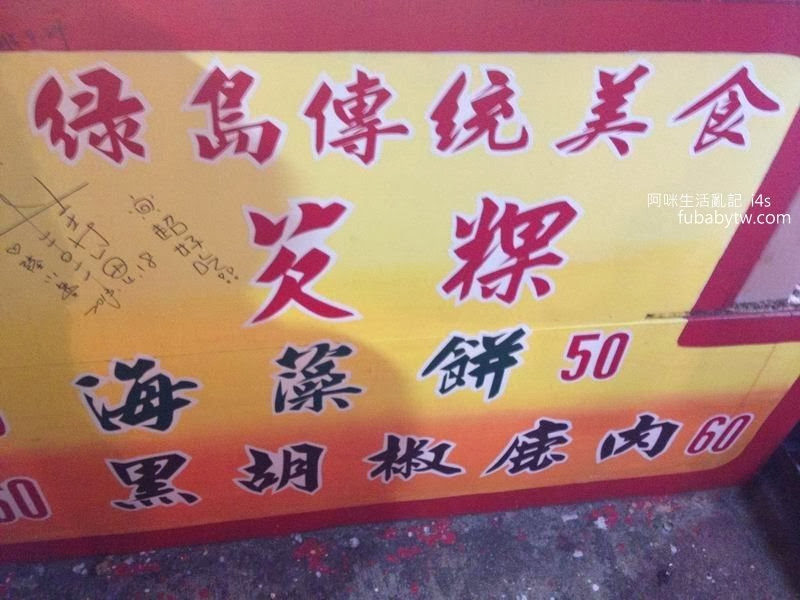 绿島傳統美食
阿咪生活亂記 i4s
fubabytw.com
芡粿
海藻餅 50
60 黑胡椒鹿肉 60